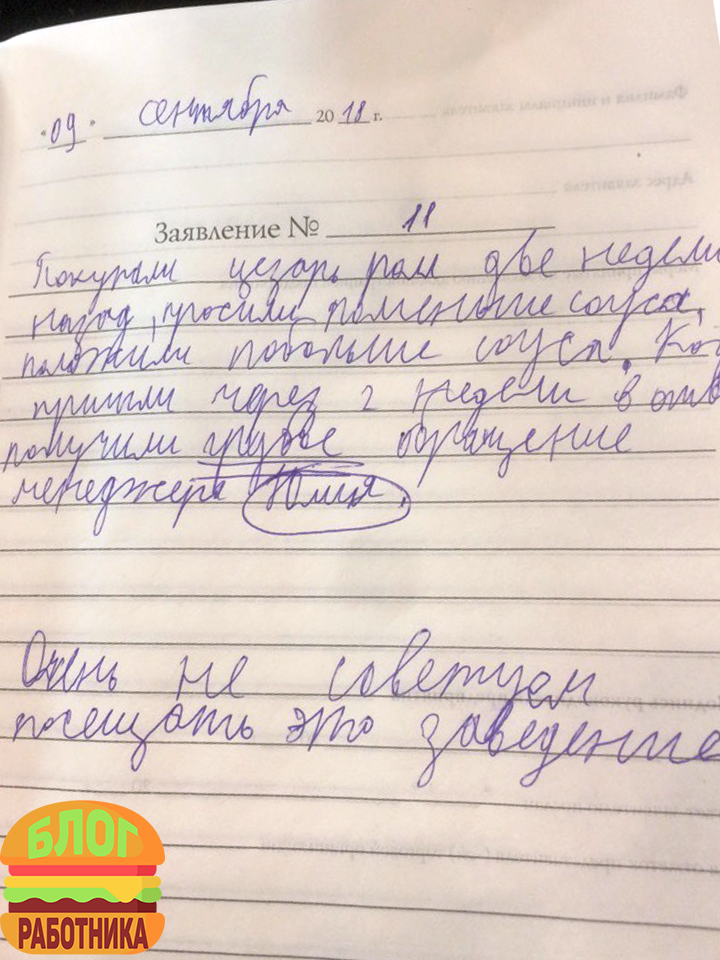 "09" сентября 2018 г.
Заявление № 11
Покупали цезарь ролл две недели
назад, просили поменьше соуса,
положили побольше соуса. Ко
пришли через 2 недели в отв
получили грубое обращение
менеджера Юлия.
Очень не советуем
посещать это заведение
БЛОГ
РАБОТНИКА